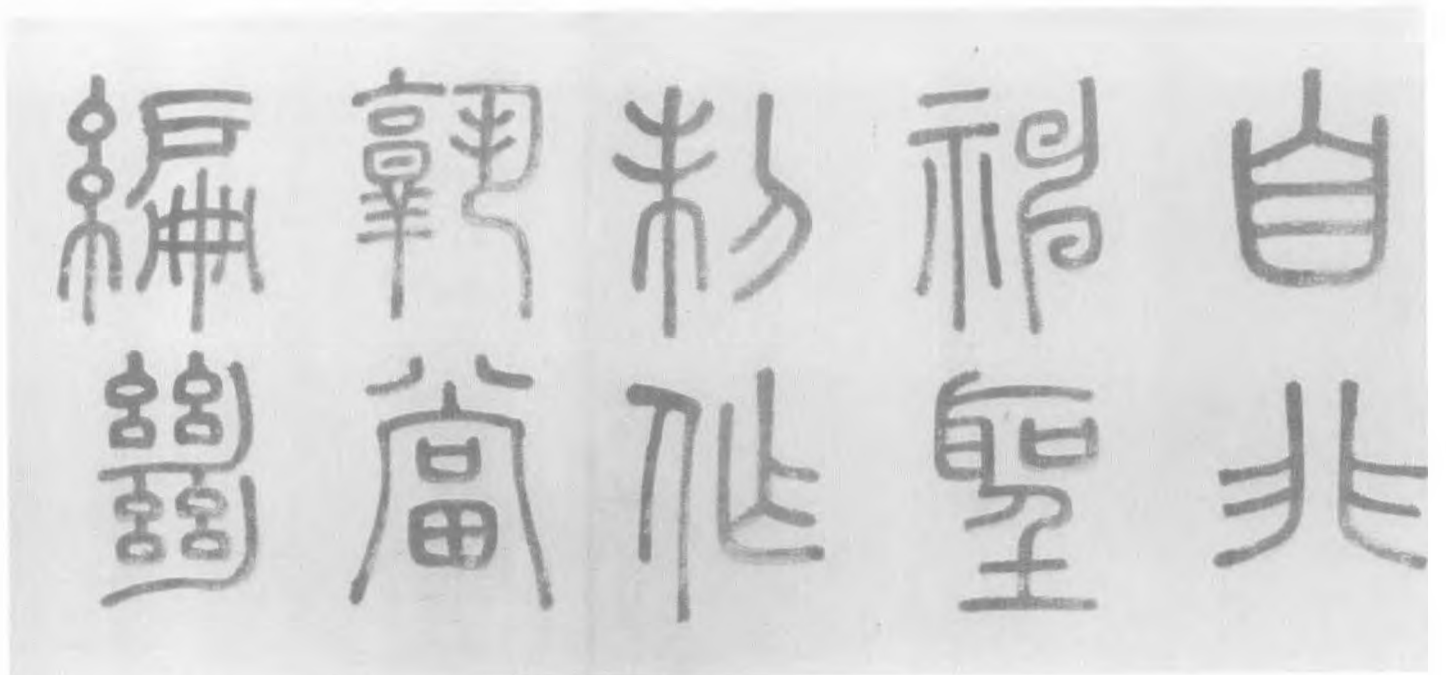 自非
神聖
制作
孰當
編絕